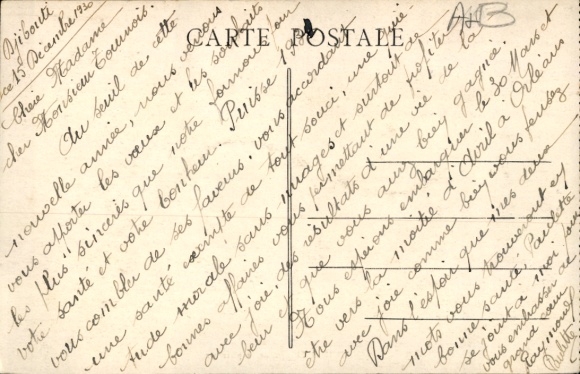 CARTE POSTALE
Djibouti
ce 15 Décembre 1930
Chère Madame
cher Monsieur Tournois.
Au seuil de cette
nouvelle année, nous venons
vous apporter les vœux et les souhaits
les plus sincères que notre formons pour
votre santé et votre bonheur. Puisse 1931
vous combler de ses faveurs, vous accordant
une santé exempte de tout souci, une
morale sans nuages et surtout de
bonnes affaires vous permettant de profiter
avec joie, des résultats d'une vie de la
beur et que vous avez bien gagnée.
Nous espérons embarquer le 20 Mars et
être vers la moitié d'Avril à Orléans
avec joie comme bien vous pensez
Dans l'espoir que mes deux
mots vous trouveront en
bonne santé, Paulette
se joint à moi pour
vous embrasser de
grand cœur
Raymond
Paulette